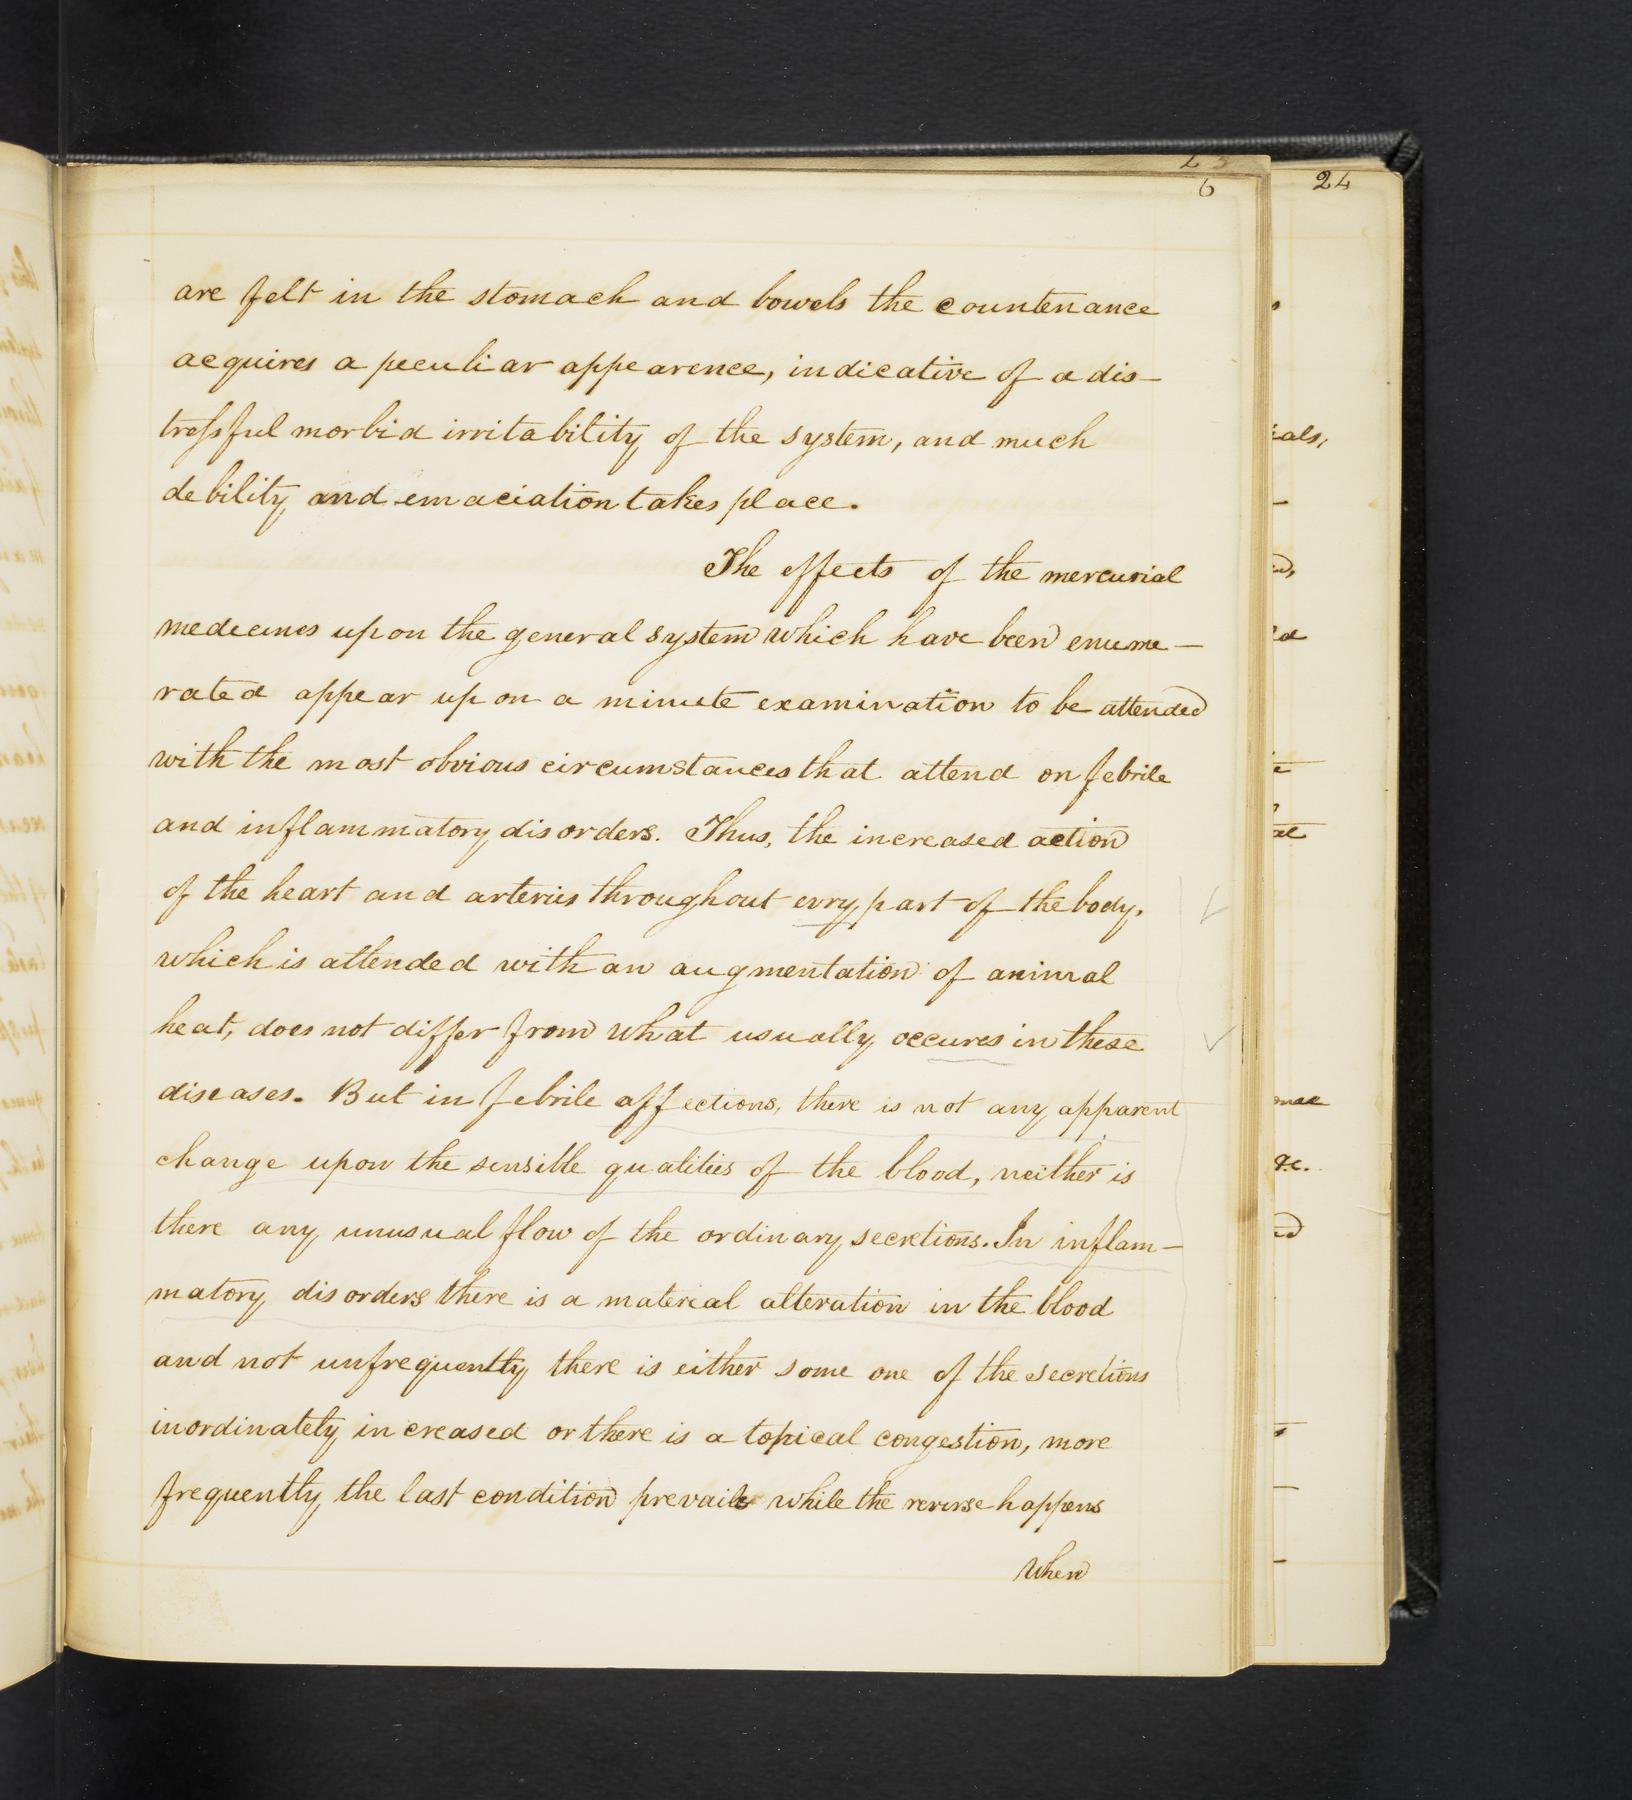 23
6
24
are felt in the stomach and bowels the countenance
acquires a peculiar appearence, indicative of a dis-
tressful morbid irritability of the system, and much
debility and emaciation takes place.
The effects of the mercurial
medecines upon the general system which have been enume-
rated appear upon a minute examination to be attended
with the most obvious circumstances that attend on febrile
and inflammatory disorders. Thus, the increased action
of the heart and arteries throughout evry part of the body,
which is attended with an augmentation of animal
heat, does not differ from what usually occures in these
diseases. But in febrile affections, there is not any apparent
change upon the sensible qualities of the blood, neither is
there any unusual flow of the ordinary secretions. In inflam-
matory disorders there is a material alteration in the blood
and not unfrequently there is either some one of the secretions
inordinately increased or there is a topical congestion, more
frequently the last condition prevails while the reverse happens
when